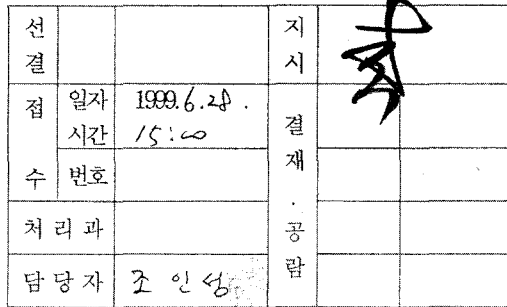 선결
지시
접수
일자 시간
1999.6.28.
15:00
결재·공람
번호
처리과
담당자
조인성